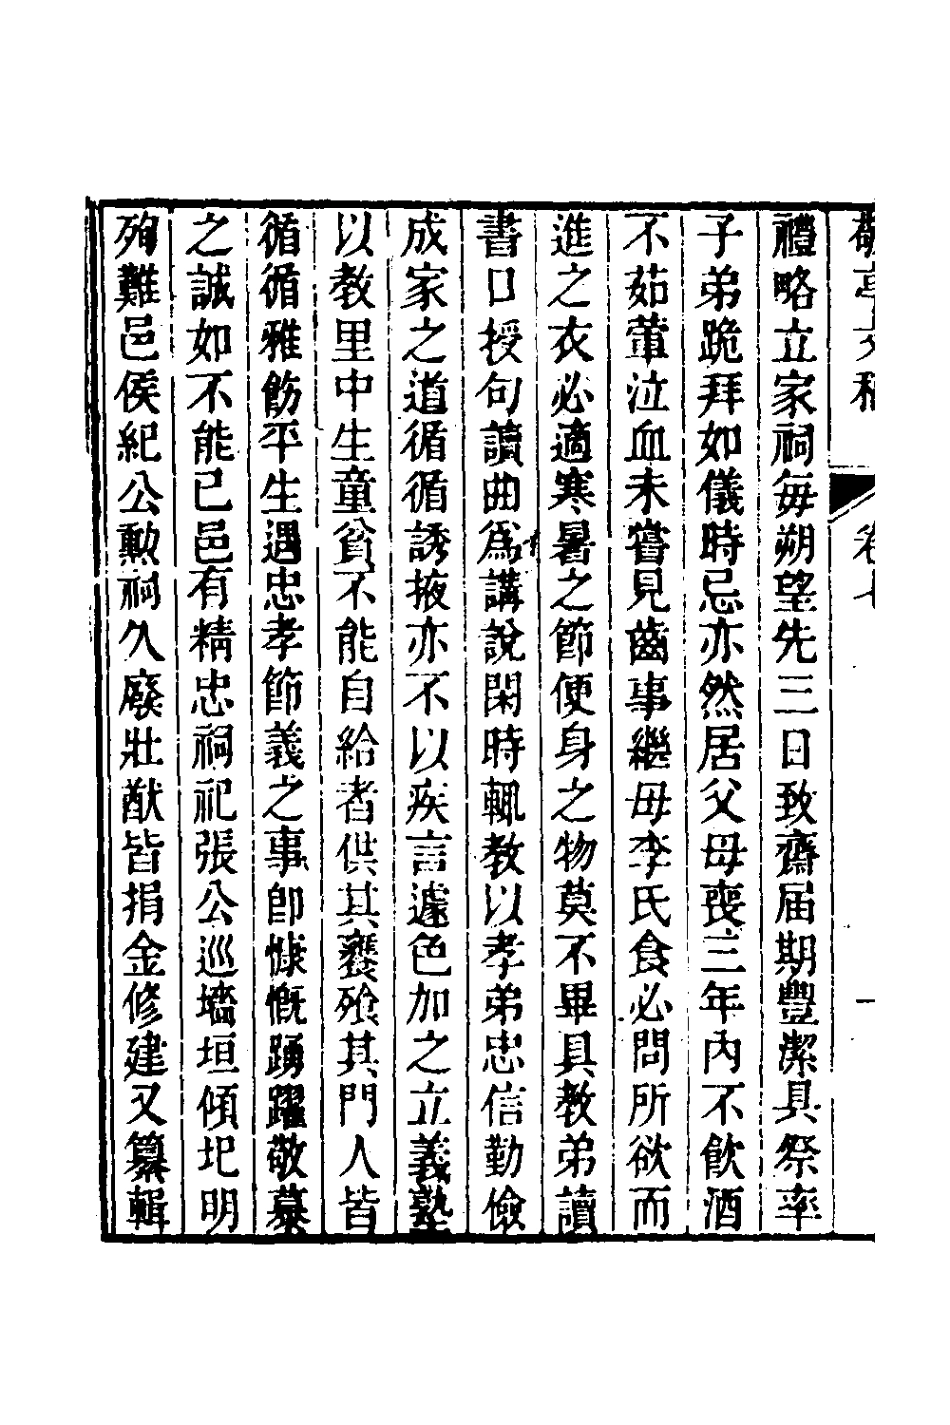 敬亭文稿 卷七 一
禮略立家祠每朔望先三日致齋届期豐潔具祭率
子弟跪拜如儀時忌亦然居父母喪三年內不飲酒
不茹葷泣血未嘗見齒事繼母李氏食必問所欲而
進之衣必適寒暑之節便身之物莫不畢具教弟讀
書口授句讀曲爲講說閑時輒教以孝弟忠信勤儉
成家之道循循誘掖亦不以疾言遽色加之立義塾
以教里中生童貧不能自給者供其饔飧其門人皆
循循雅飭平生遇忠孝節義之事即慷慨踴躍敬慕
之誠如不能已邑有精忠祠祀張公巡墻垣傾圯明
殉難邑侯紀公勲祠久廢壯猷皆捐金修建又纂輯